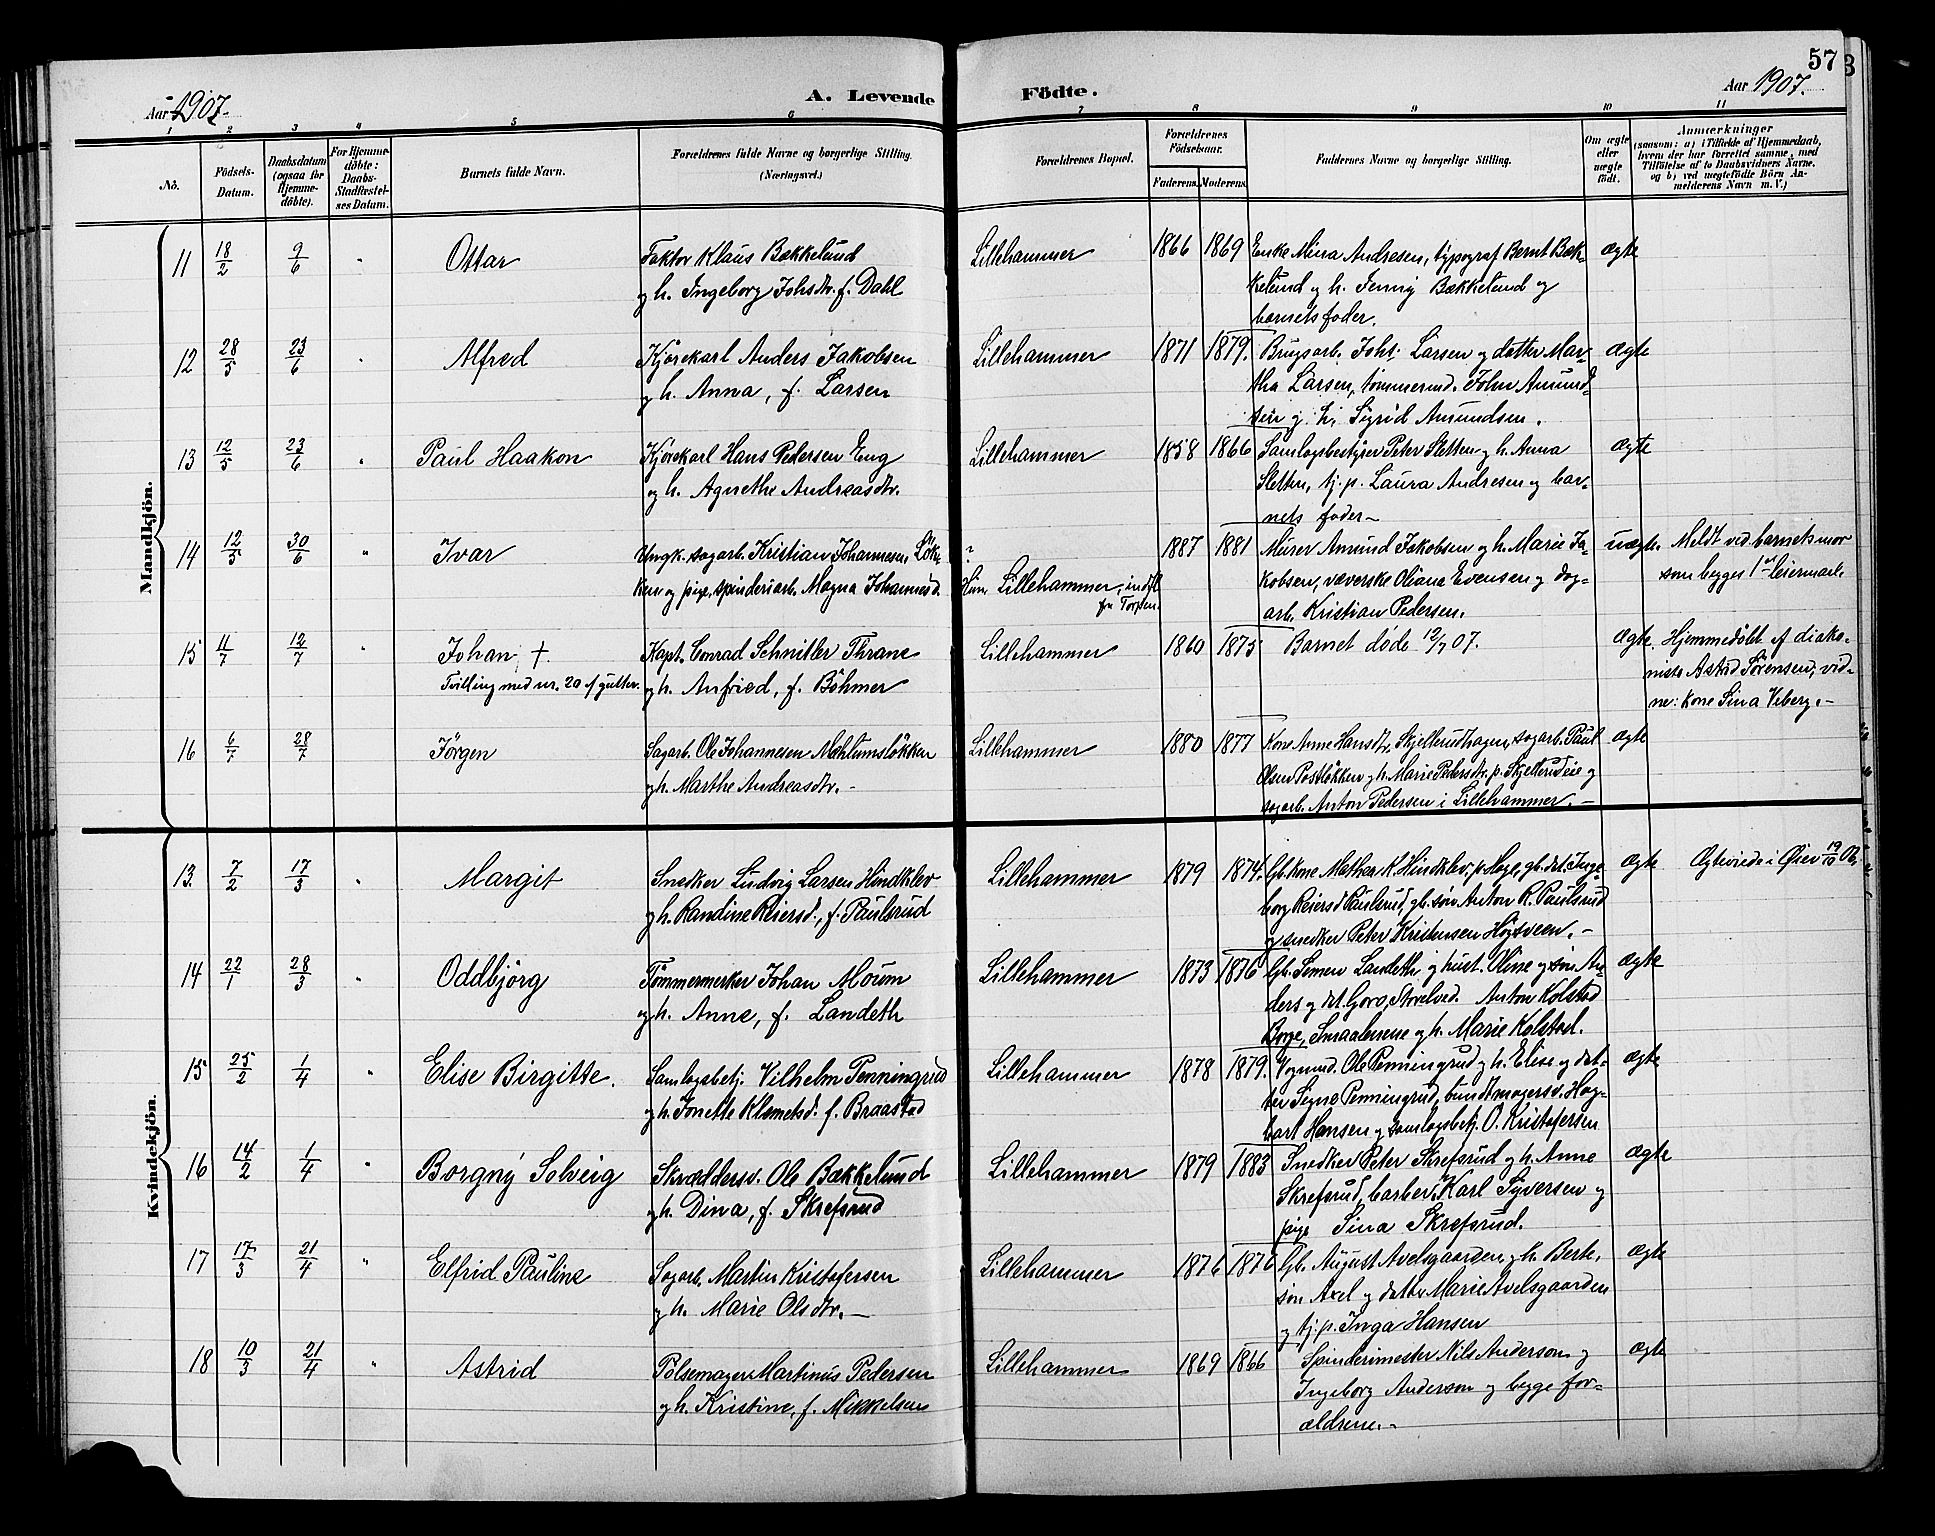 57
Aar 1907. A. Levende Födte. Aar 1907.
1 2 3 4 5 6 7 8 9 10 11
No.
Födsels-
Datum.
Daabsdatum
(ogsaa for
Hjemme-
döbte).
For Hjemme-
döbte:
Daabs-
Stadfæstel-
ses Datum.
Barnets fulde Navn.
Forældrenes fulde Navne og borgerlige Stilling.
(Næringsvei.)
Forældrenes Bopæl.
Forældrenes
Födselsaar.
Faderens. Moderens.
Faddernes Navne og borgerlige Stilling.
Om ægte
eller
uægte
födt.
Anmærkninger
(saasom: a) i Tilfælde af Hjemmedaab,
hvem der har forrettet samme, med
Tilföielse af to Daabsvidners Navne,
og b) ved uægtefödte Börn An-
melderens Navn m. V.)
Mandkjön.
11 18/2 9/6 " Ottar
Faktor Klaus Bækkelund
og h. Ingeborg Johsdtr. f. Dahl
Lillehammer 1866 1869
Enke Mina Andresen, typograf Bernt Bæk-
kelund og h. Jenny Bækkelund og
barnets fader.
ægte
12 28/5 23/6 " Alfred
Kjörekarl Anders Jakobsen
og h. Anna, f. Larsen
Lillehammer 1871 1879.
Brugsarb. Johs. Larsen og datter Mar-
tha Larsen, tømmermd. John Amund-
sen og h. Sigrid Amundsen.
ægte
13 12/5 23/6 " Paul Haakon
Kjörekarl Hans Pedersen Eng
og h. Agnethe Andreasdtr.
Lillehammer 1858 1866
Samlagsbestyrer Peter Sletten og h. Anna
Sletten, tj.p. Laura Andresen og bar-
nets fader -
ægte
14 12/5 30/6 " Ivar
Ungk. sagarb. Kristian Johannesen Løk-
ken og pige, spinderiarb. Magna Johannesd.
?
Hun Lillehammer, indfl.
fra Torpen.
1887 1881
Murer Amund Jakobsen og h. Marie Ja-
kobsen, væverske Oliana Evensen og dag-
arb. Kristian Pedersen.
uægte. Meldt ved barnets mor
som begges 1ste leiermaal.
15 11/7 12/7 " Johan †.
Tvilling med nr. 20 af gutter.
Kapt. Conrad Schnitler Thrane
og h. Anfried, f. Böhmer
Lillehammer 1860 1875
Barnet døde 12/7 07.
ægte. Hjemmedöbt af diako-
nisse Astrid Sörensen, vid-
ne: kone Sina Viberg. -
16 6/7 28/7 Jörgen
Sagarb. Ole Johannesen Mehlumsløkken
og h. Marthe Andreasdtr. -
Lillehammer 1880 1877
Kone Anne Hansdtr. Skjellerudhagen, sagarb. Paul
Olsen Postløkken og h. Marie Pedersdtr. p. Skjellerudeie og
sagarb. Anton Pedersen i Lillehammer. -
ægte
Kvindekjön.
13. 7/2 17/3 " Margit
Snedker Ludvig Larsen Hindklev
og h. Randine Reiersd., f. Paulsrud
Lillehammer 1879 1874.
Gb. kone Mathea K. Hindklev, p. Hage, gb. dat. Inge-
borg Reiersd Paulsrud, gb. sön Anton R. Paulsrud
og snedker Peter Kristensen Högsveen. -
ægte Ægteviede i Øier 19/10 06.
14 22/1 28/3 " Oddbjörg
Tömmermerker Johan Moum
og h. Anne, f. Landeth
Lillehammer 1873 1876
Gb. Simen Landeth og hust. Oline og sön An-
ders og dat. Goro, Storelved. Anton Kolstad
Borge, Smaalenene og h. Marie Kolstad.
ægte
15 25/2 1/4 " Elise Birgitte.
Samlagsbetj. Vilhelm Penningrud
og h. Jonette Klemetsd. f. Braastad
Lillehammer 1878 1879.
Vognmd. Ole Penningrud og h. Elise og dat-
ter Signe Penningrud, buntmagersv. Hag-
bart Hansen og samlagsbetj. O. Kristofersen
ægte
16 14/2 1/4 " Borgny Solveig
Skræddersv. Ole Bækkelund
og h. Dina, f. Skrefsrud
Lillehammer 1879 1883
Snedker Peter Skrefsrud og h. Anne
Skrefsrud, barber Karl Syversen og
pige Sina Skrefsrud.
ægte
17 17/3 21/4 " Elfrid Pauline
Sagarb. Martin Kristofersen
og h. Marie Olsdtr. -
Lillehammer 1876 1876
Gb. August Avelsgaarden og h. Berte,
sön Axel og datter Marie Avelsgaarden
og tj.p. Inga Hansen
ægte
18 10/3 21/4 " Astrid
Pölsemager Martinus Pedersen
og h. Kristine, f. Mikkelsen
Lillehammer 1869 1866
Spinderimester Nils Anderson og
Ingeborg Anderson og begge for-
ældrene. -
ægte